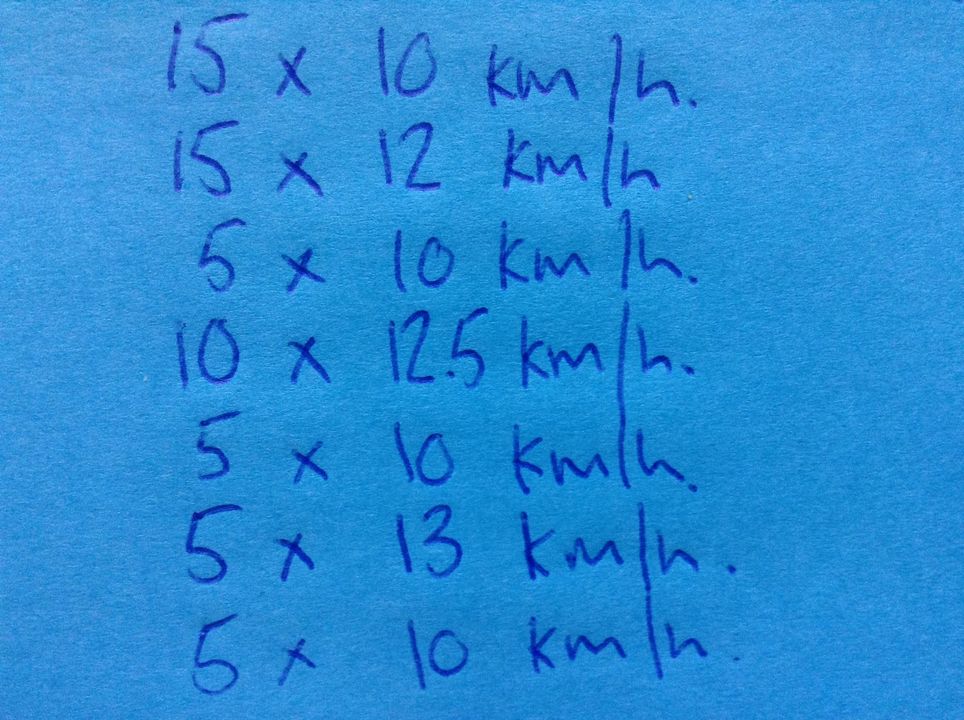 15 x 10 km/h.
15 x 12 km/h
5 x 10 km/h.
10 x 12.5 km/h.
5 x 10 km/h.
5 x 13 km/h.
5 x 10 km/h.